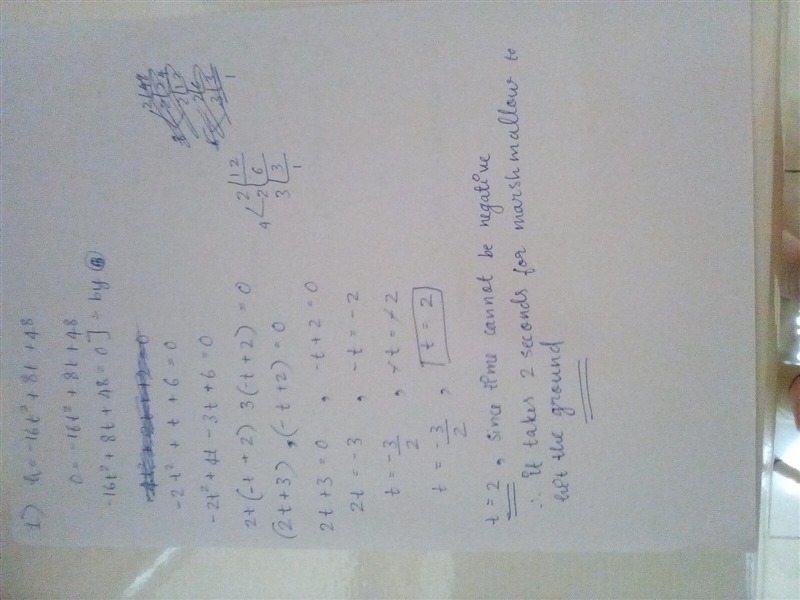 1) h = -16t² + 8t + 48
0 = -16t² + 8t + 48
-16t² + 8t + 48 = 0] ÷ by 8
-2t² + t + 6 = 0
-2t² + 4t - 3t + 6 = 0
2t(-t + 2) 3(-t + 2) = 0
(2t + 3), (-t + 2) = 0
2t + 3 = 0 , -t + 2 = 0
2t = -3 , -t = -2
t = -3/2 , -t = -2
t = -3/2 , t = 2
2 12
4 < 2 6
3 3
1
t = 2, since time cannot be negative
∴ It takes 2 seconds for marshmallow to
hit the ground